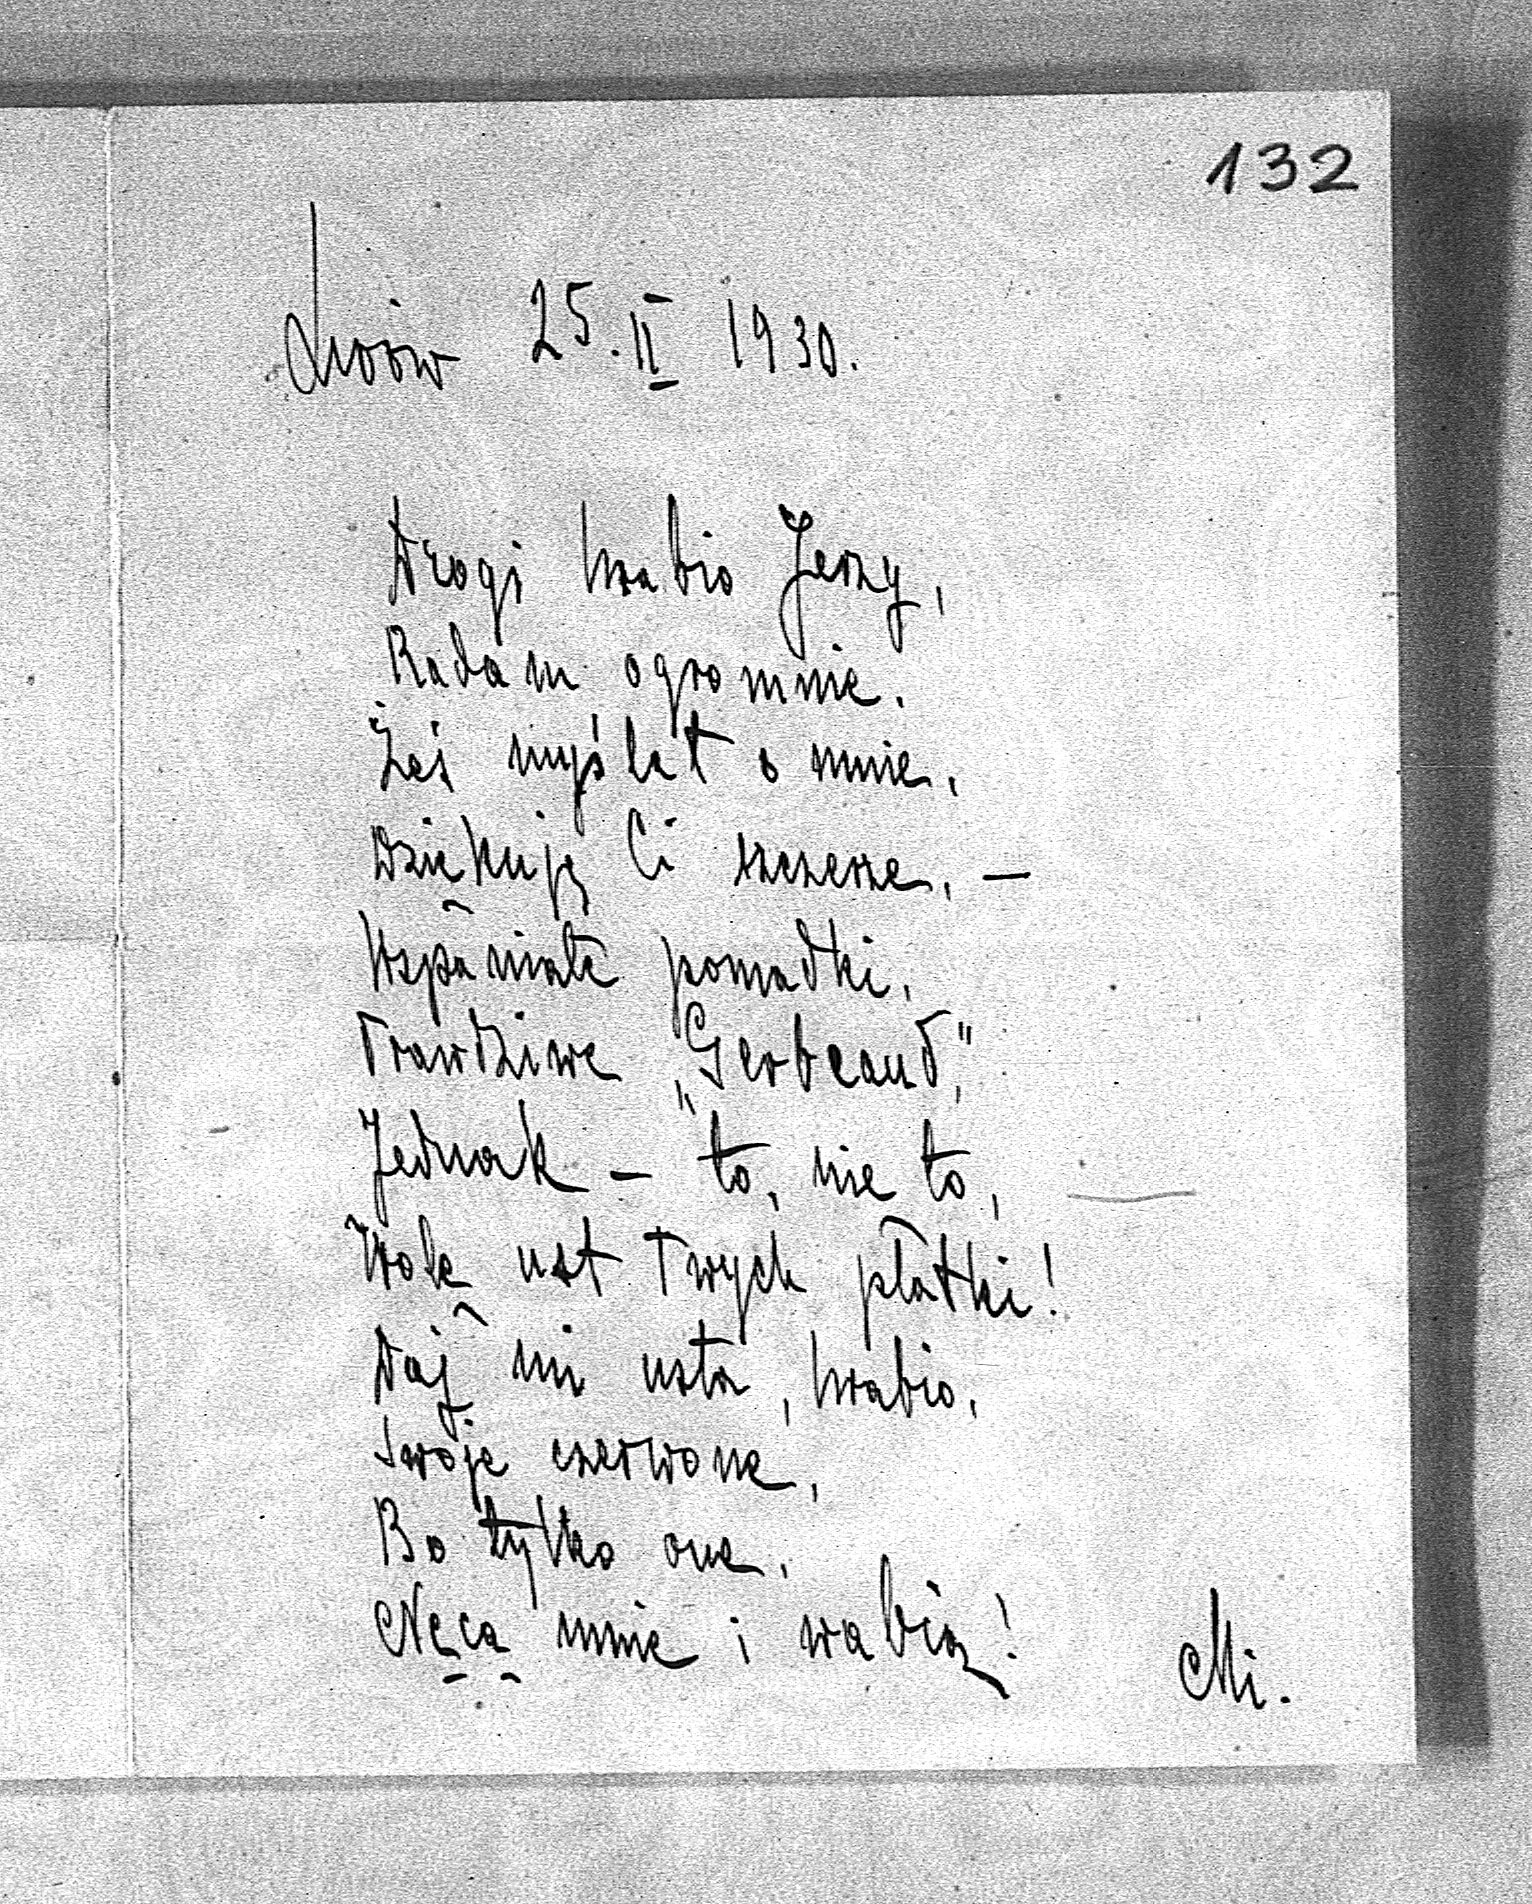 132
Lwów 25. II 1930.
Drogi hrabio Jerzy,
Radam ogromnie,
Żeś myślał o mnie,
Dziękuję Ci szczerze, —
Wspaniałe pomadki,
Prawdziwe „Gerbeaud”,
Jednak — to, nie to,
Wolę ust Twych płatki!
Daj mi usta, hrabio,
Swoje czerwone,
Bo tylko one,
Nęcą mnie i wabią!
Mi.